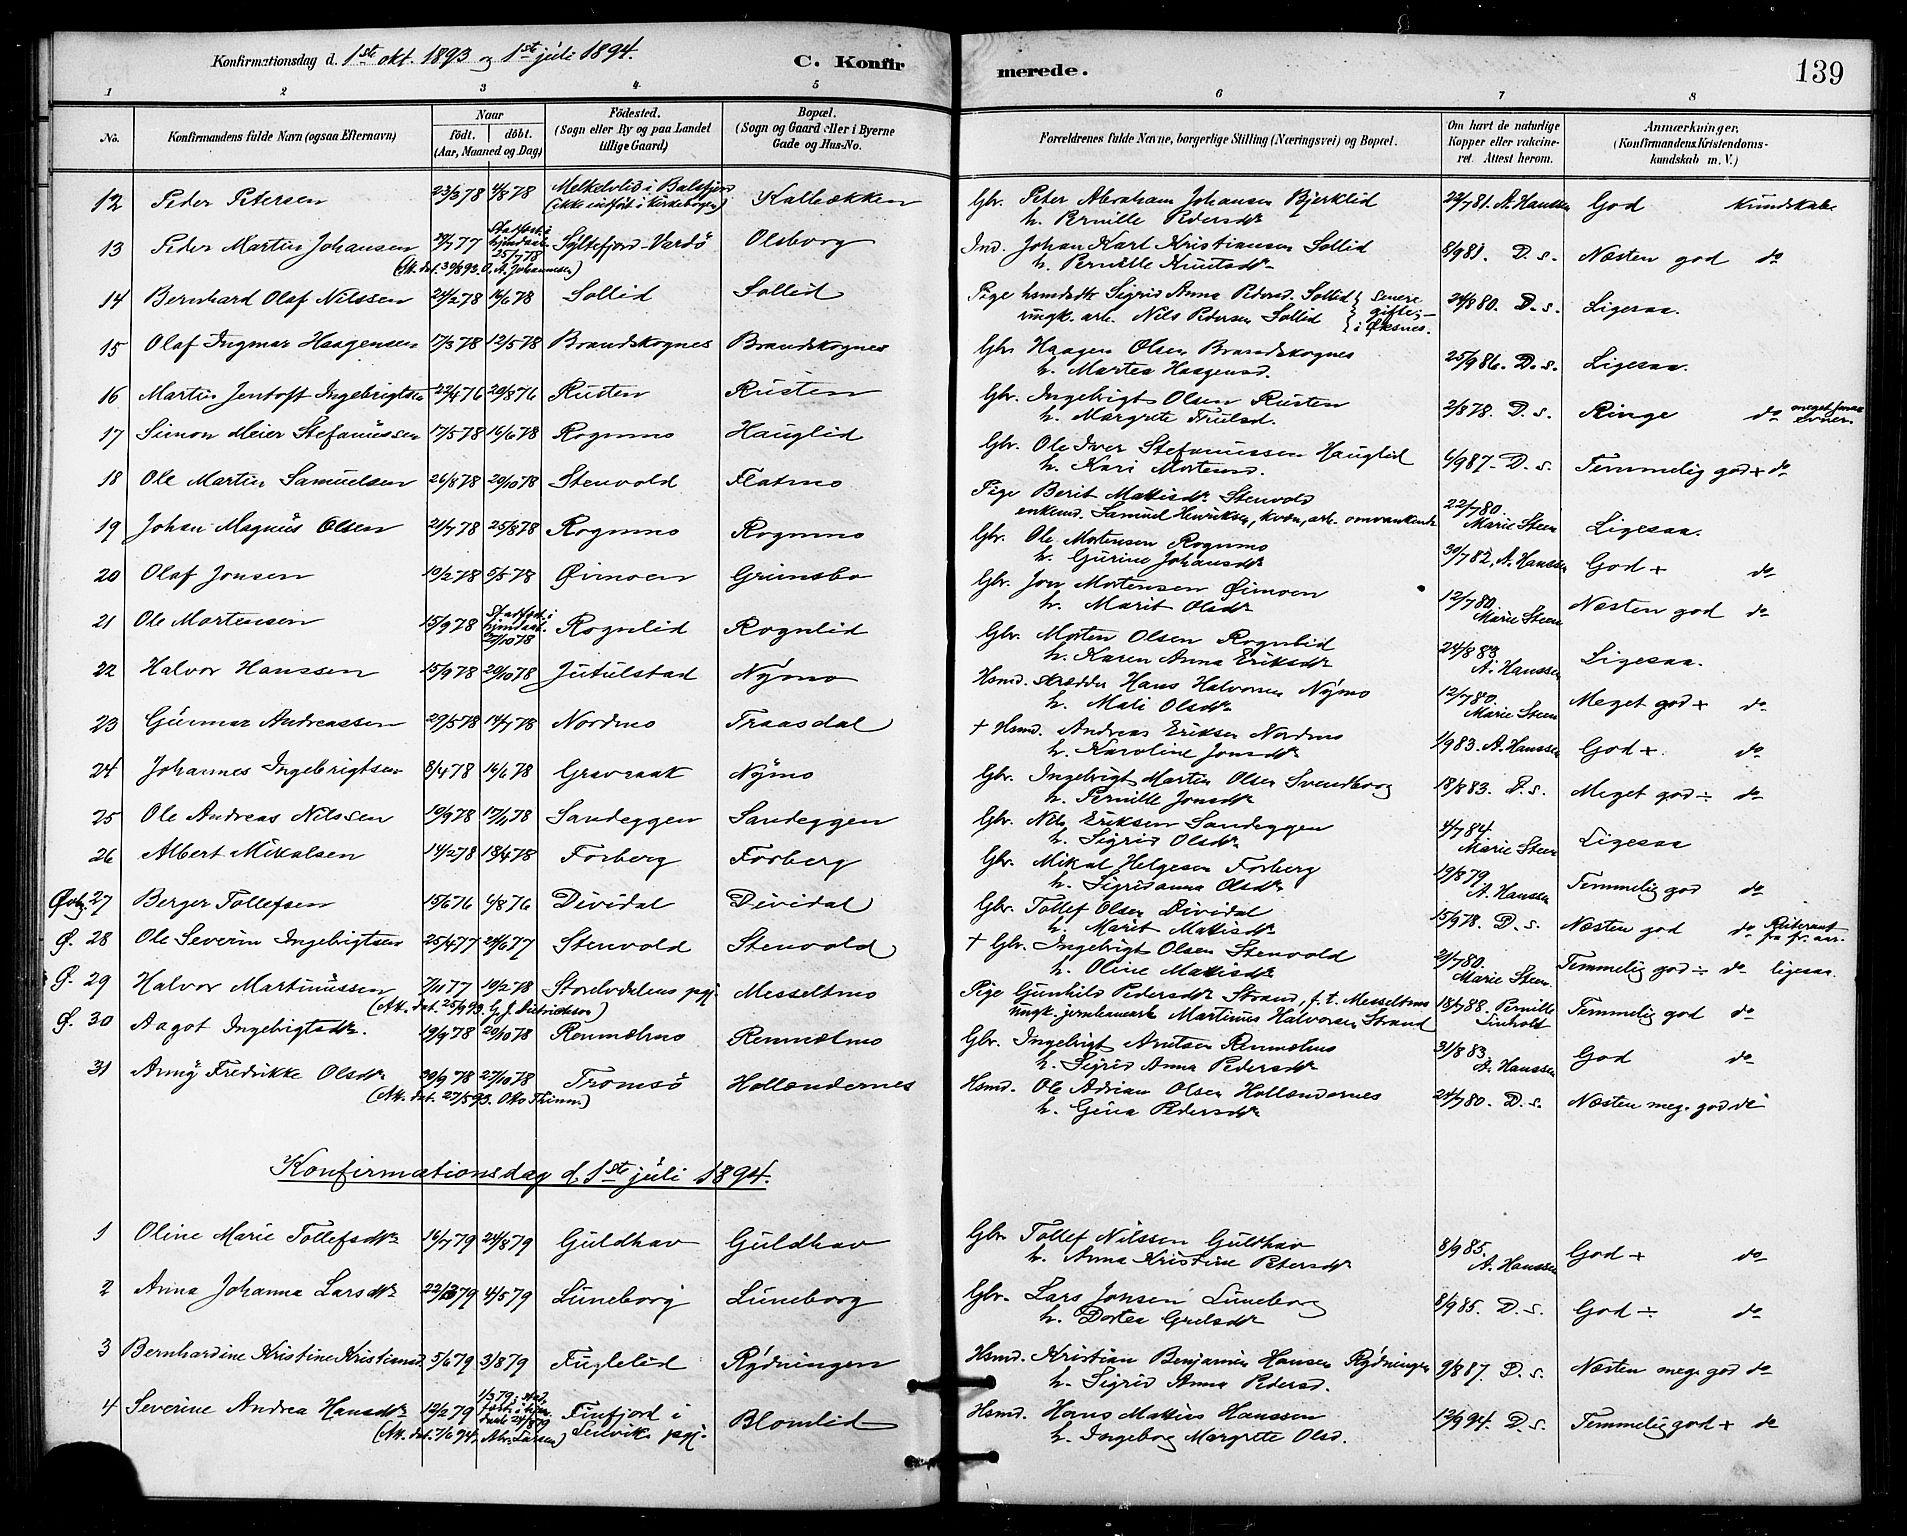 Konfirmationsdag d. 1ste okt. 1893 og 1ste juli 1894.
C. Konfirmerede.
139
1 2 3 4 5 6 7 8
No. Konfirmandens fulde Navn (ogsaa Efternavn) Naar födt. döbt. (Aar, Maaned og Dag) Födested. (Sogn eller By og paa Landet tillige Gaard) Bopæl. (Sogn og Gaard eller i Byerne Gade og Hus-No. Forældrenes fulde Navne, borgerlige Stilling (Næringsvei) og Bopæl. Om havt de naturlige Kopper eller vakcineret. Attest herom. Anmærkninger. (Konfirmandens Kristendomskundskab m. V.)
12 Peder Petersen 23/3 78 4/8 78 Melkelvlid i Balsfjord (ikke indført i Kirkebogen) Kalbækken Gbr. Peter Abraham Johansen Bjerklid
h. Pernille Pedersdtr 22/7 81. A. Hanssen God Kundskab.
13 Peder Martin Johansen 77 Stadfæst i 25/7 78 Syltefjord-Vardö Olsborg Ind. Johan Karl Kristiansen Sollid
(At. dat. 30/8 93. O. A. Johannesen) h. Pernille Knutsdtr 8/9 81. D. s. Næsten god do
14 Bernhard Olaf Nilssen 24/2 78 16/6 78 Sollid Sollid Pige hsmdsdtr Sigrid Anna Pedersd. Sollid } senere gifte,
ungk. arb. Nils Pedersen Sollid } i Øksnes. 24/8 80. D. s. Ligesaa.
15 Olaf Ingmar Haagensen 17/3 78 12/5 78 Brandskognes Brandskognes Gbr. Haagen Olsen Brandskognes
h. Martea Haagensd. 25/9 86. D. s. Ligesaa.
16 Martin Jentoft Ingebrigtsen 22/4 76 20/8 76 Rusten Rusten Gbr. Ingebrigt Olsen Rusten
h. Margrete Trulsd. 2/8 78. D. s. Ringe do meget smaa evner.
17 Simon Meier Stefanussen 17/5 78 16/6 78 Rognmo Hauglid Gbr. Ole Iver Stefanussen Hauglid
h. Kari Mortensd. 6/9 87. D. s. Temmelig god + do
18 Ole Martin Samuelsen 26/8 78 20/10 78 Stenvold Flatmo Pige Berit Matisdtr Stenvold
enkemd. Samuel Henriksen, kvæn, arb. omvankende 22/7 80. Marie Steen Ligesaa.
19 Johan Magnus Olsen 21/7 78 25/8 78 Rognmo Rognmo Gbr. Ole Mortensen Rognmo
h. Gurine Johansdtr 30/7 82, A. Hanssen God + do
20 Olaf Jonsen 10/2 78 5/5 78 Øimoen Grimsbo Gbr. Jon Mortensen Øimoen
h. Marit Olsdtr 12/7 80. Marie Steen Næsten god do
21 Ole Mortensen 15/9 78 Stadfæst i 27/10 78 Rognlid Rognlid Gbr. Morten Olsen Rognlid
h. Karen Anna Eriksdtr 24/8 83. A. Hanssen Ligesaa.
22 Halvor Hanssen 15/9 78 20/10 78 Jutulstad Nymo Hsmd. skrædder Hans Halvorsen Nymo
h. Mali Olsdtr 12/7 80. Marie Steen Meget god + do
23 Gunnar Andreassen 29/5 78 14/7 78 Nordmo Fraasdal † Hsmd. Andreas Eriksen Nordmo
h. Karoline Jonsdtr 1/9 83. A. Hanssen God +. do
24 Johannes Ingebrigtsen 8/4 78 16/6 78 Gravraak Nymo Gbr. Ingebrigt Morten Olsen Svendborg
h. Pernille Jonsdtr 18/8 83. D. s. Meget god ÷ do
25 Ole Andreas Nilssen 10/9 78 17/11 78 Sandeggen Sandeggen Gbr. Nils Eriksen Sandeggen
h. Sigrid Olsdtr 4/7 84. Marie Steen Ligesaa
26 Albert Mikalsen 14/2 78 18/4 78 Forberg Forberg Gbr. Mikal Helgesen Forberg
h. Sigridanna Olsdtr 19/8 79. A. Hanssen Temmelig god do
27 Berger Tollefsen 15/6 76 6/8 76 Dividal Dividal Gbr. Tollef Olsen Dividal
h. Marit Matisdtr 15/9 78. D. s. Næsten god do
Ø. 28 Ole Severin Ingebrigtsen 25/4 77 24/6 77 Stenvold Stenvold † Gbr. Ingebrigt Olsen Stenvold
h. Oline Matisdtr 2/7 80. Marie Steen Temmelig god ÷ do ligesaa.
Ø. 29 Halvor Martinussen 7/11 77 10/2 78 Storelvdalens pgj. Messeltmo Pige Gunhild Pedersdtr Strand, f. t. Messeltmo
(At. dat. 25/9 93. G. J. Dietrichson) ungk. jernbanearb. Martinus Halvorsen Strand 18/7 88. Pernille Linhold Temmelig god do
Ø. 30 Aagot Ingebrigtsdtr. 19/9 78 20/10 78 Renmælmo Renmælmo Gbr. Ingebrigt Arntsen Renmælmo
h. Sigrid Anna Pedersdtr 31/8 83. A. Hanssen God do
31 Anny Fredrikke Olsdtr 20/9 78 27/10 78 Tromsö Hollændernes Hsmd. Ole Adrian Olsen Hollændernes
(At. dat. 27/5 93. Ths Thimm) h. Gina Pedersdtr 24/7 80. D. s. Næsten meg. god do
Konfirmationsdag d. 1ste juli 1894.
1 Oline Marie Tollefsdtr 16/7 79 24/8 79 Guldhav Guldhav Gbr. Tollef Nilssen Guldhav
h. Anna Kristine Petersdtr 8/9 85. A. Hanssen God + do
2 Anna Johanna Larsdtr 22/3 79 4/5 79 Luneborg Luneborg Gbr. Lars Jonsen Luneborg
h. Dortea Grelsdtr 8/9 85. D. s. God ÷ do
3 Bernhardine Kristine Kristiansd. 5/6 79 3/8 79 Fuglelid Rydningen Hsmd. Kristian Benjamin Hansen Rydningen
h. Sigrid Anna Pedersd. 9/8 87. D. s. Næsten meg. god do
4 Severine Andrea Hansdtr 12/2 79 1/3 79. Finfjord i Lenviks pgj. Blomlid Hsmd. Hans Mathias Hanssen
(At. dat. 7/6 94, Abr. Larsen) h. Ingeborg Margrete Olsd. 12/9 94. D. s. Temmelig god + do